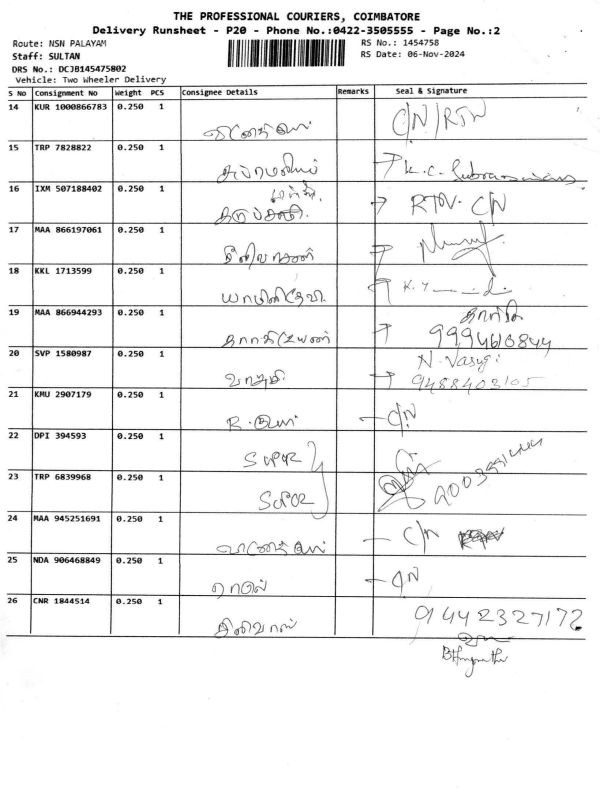 THE PROFESSIONAL COURIERS, COIMBATORE
Delivery Runsheet - P20 - Phone No.:0422-3505555 - Page No.:2
Route: NSN PALAYAM RS No.: 1454758
Staff: SULTAN RS Date: 06-Nov-2024
DRS No.: DCJB145475802
Vehicle: Two Wheeler Delivery
S No Consignment No Weight PCS Consignee Details Remarks Seal & Signature
14 KUR 1000866783 0.250 1 C/N/RTN
15 TRP 7828822 0.250 1 K.C.
16 IXM 507188402 0.250 1 RTN. C/N
17 MAA 866197061 0.250 1 சீனிவாசன்
18 KKL 1713599 0.250 1 யாமினிதேவி K.Y
19 MAA 866944293 0.250 1 கார்த்திகேயன் 9994610844
20 SVP 1580987 0.250 1 வாசுகி N. Vasugi
9488403105
21 KMU 2907179 0.250 1 C/N
22 DPI 394593 0.250 1
23 TRP 6839968 0.250 1
24 MAA 945251691 0.250 1 C/N
25 NDA 906468849 0.250 1 C/N
26 CNR 1844514 0.250 1 சீனிவாஸ் 91442327172